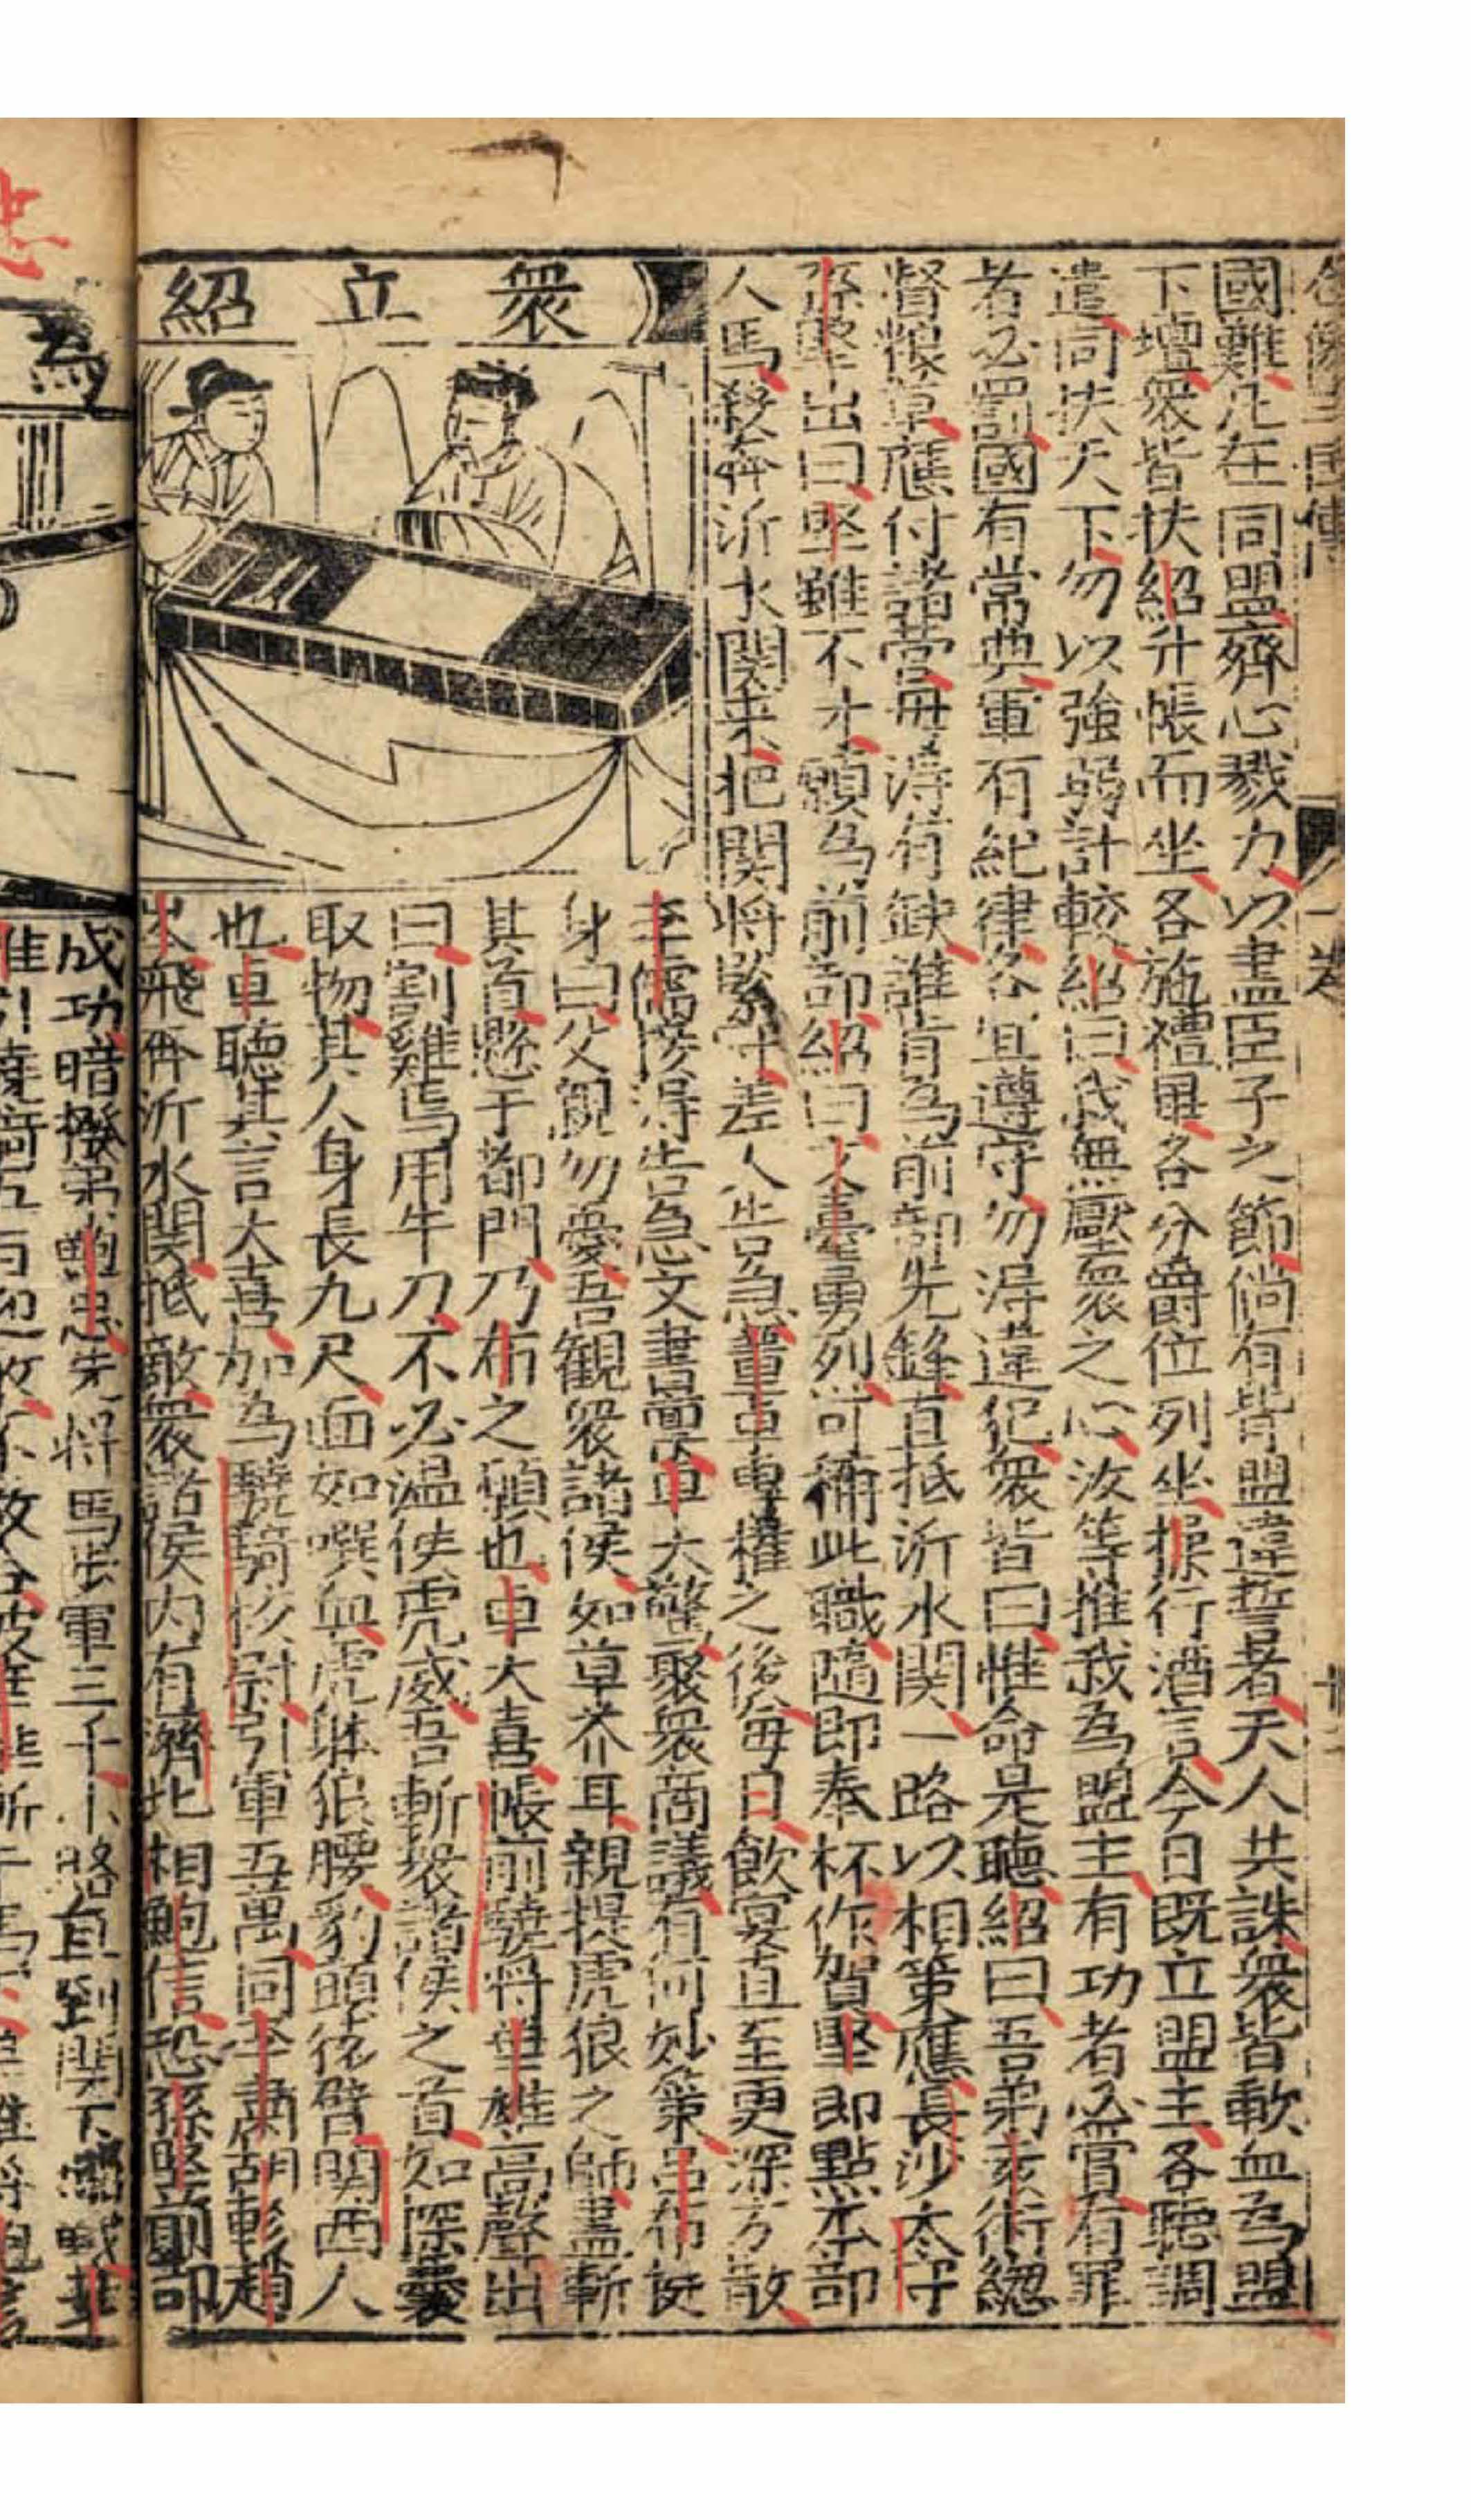 全像三國傳 一卷
國難凡在同盟齊心戮力以盡臣子之節倘有皆盟違誓者天人共誅衆皆歃血為盟
下壇衆皆扶紹升帳而坐各施禮畢各分爵位列坐操行酒言今日既立盟主各聽調
遣同扶天下勿以強弱計較紹曰我無壓衆之心汝等推我為盟主有功者必賞有罪
者必罰國有常典軍有紀律各宜遵守勿得違犯衆皆曰惟命是聽紹曰吾弟袁術緫
督粮草應付諸營毋得有缺誰肯為前部先鋒直抵沂水関一路以相策應長沙太守
孫堅出曰堅雖不才願為前部紹曰文臺勇列可稱此職隨即奉杯作賀堅即點本部
人馬殺奔沂水関来把関將緊守差人告急董卓專權之後每日飲宴直至更深方散
衆立紹
李儒接得告急文書啚稟卓大驚聚衆商議有何妙策呂布挺
身曰父親勿憂吾観衆諸侯如草芥耳親提虎狼之師盡斬
其首懸于都門乃布之願也卓大喜帳前驍將華雄高聲出
曰割雞焉用牛刀不必温侯虎威吾斬衆諸侯之首如探囊
取物其人身長九尺面如噀血虎躰狼腰豹頭猿臂関西人
也卓聽其言大喜加為驍騎校尉引軍五萬同李肅胡軫趙
岑飛奔沂水関抵敵衆諸侯内有濟北相鮑信恐孫堅前部
為
忠
成功暗撥弟鮑忠先將馬步軍三千小路直到関下搦戰華